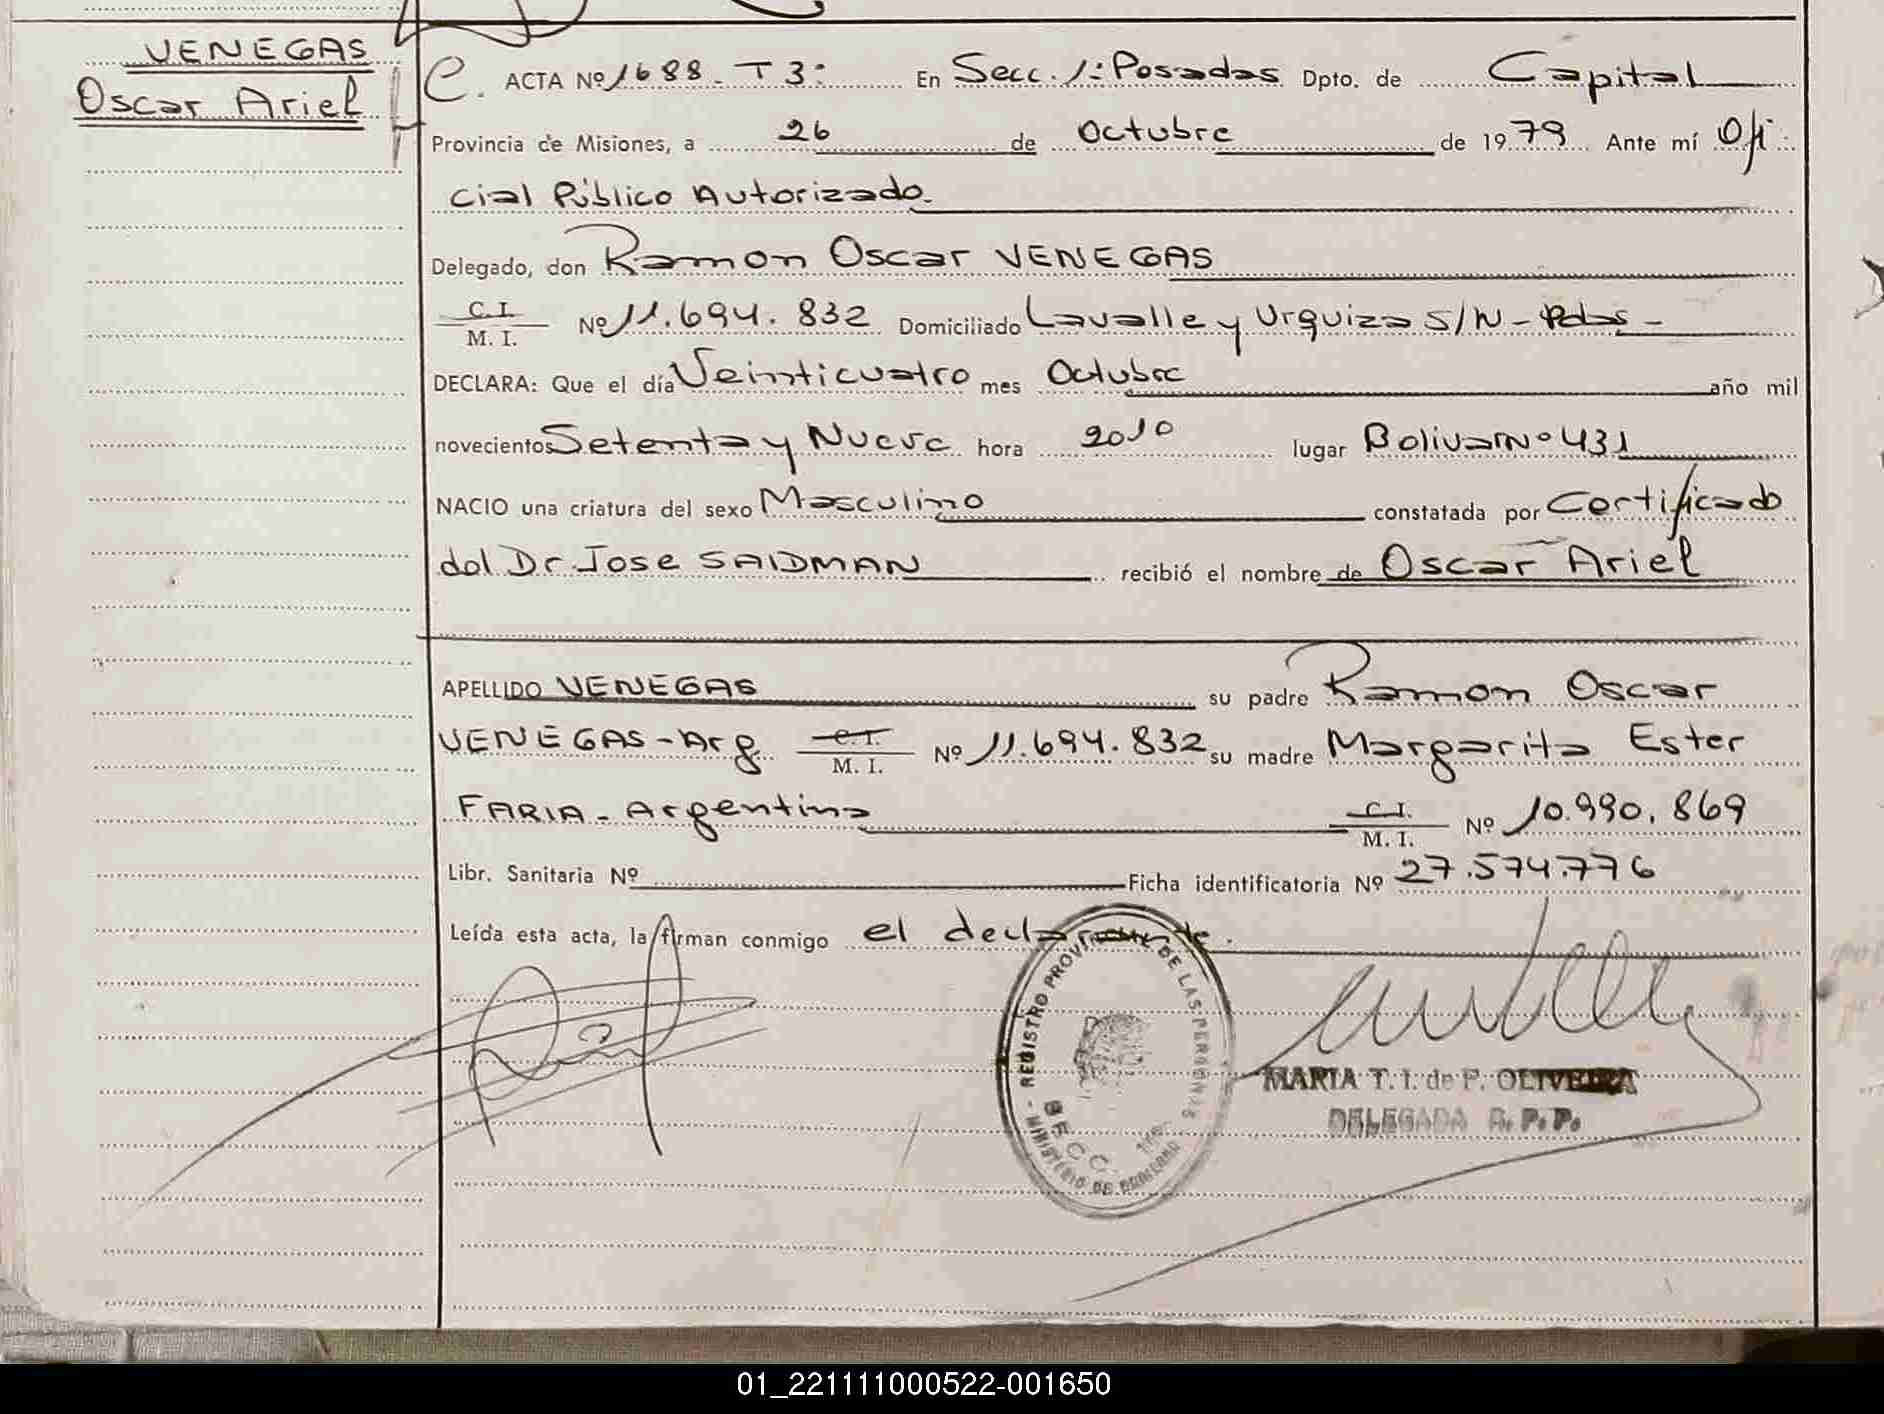 VENEGAS
Oscar Ariel
C. ACTA Nº 1688 - T 3º En Secc. 1ª Posadas Dpto. de Capital
Provincia de Misiones, a 26 de Octubre de 1979 Ante mí Ofi
cial Público Autorizado.
Delegado, don Ramon Oscar VENEGAS
C. I.
M. I. Nº 11.694.832 Domiciliado Lavalle y Urquiza S/N - Pdas -
DECLARA: Que el día Veinticuatro mes Octubre año mil
novecientos Setenta y Nueve hora 2010 lugar Bolivar Nº 431
NACIO una criatura del sexo Masculino constatada por Certificado
del Dr. Jose SAIDMAN recibió el nombre de Oscar Ariel
APELLIDO VENEGAS su padre Ramon Oscar
VENEGAS - Arg. C. I. M. I. Nº 11.694.832 su madre Margarita Ester
FARIA - Argentina C. I. M. I. Nº 10.990.869
Libr. Sanitaria Nº Ficha identificatoria Nº 27.574.776
Leída esta acta, la firman conmigo el declarante.
- REGISTRO PROVINCIAL DE LAS PERSONAS
- MINISTERIO DE GOBIERNO
SECC. 1ra.
MARIA T. I. de P. OLIVEIRA
DELEGADA R. P. P.
01_221111000522-001650